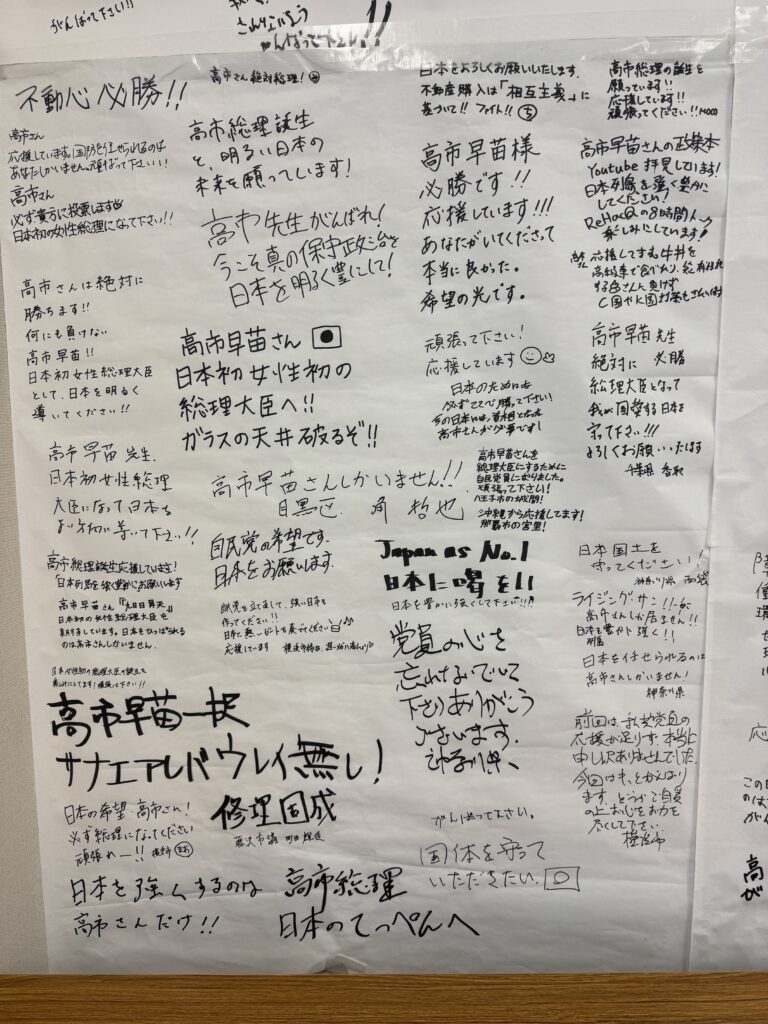 がんばって下さい!!
んばって下さい!!
不動心 必勝!!
高市さん
応援しています。国防を任せられるのは
あなたしかいません。頑ばって下さい!!
高市さん
必ず貴方に投票します
日本初の女性総理になって下さい!!
高市さんは絶対に
勝ちます!!
何にも負けない
高市早苗!!
日本初女性総理大臣
として、日本を明るく
導いてください!!
高市早苗先生.
日本初女性総理
大臣になって日本を
高市総理誕生応援しています!
日本列島を強く豊かにお願います
高市早苗さん
日本初の女性総理大臣を
期待しています。日本をひっぱられる
のは高市さんしかいません.
高市さん絶対総理!
高市総理誕生
と、明るい日本の
未来を願っています!
高市先生がんばれ!
今こそ真の保守政治で
日本を明るく豊にして!
高市早苗さん
日本初女性初の
総理大臣へ!!
ガラスの天井破るぞ!!
高市早苗さんしかいません!!
目黒区. 角 哲也
自民党の希望です.
日本をお願いします.
作ってください!!
応援しています
日本をよろしくお願いいたします.
不動産購入は「相互主義」に
基づいて!! ファイト!!
高市早苗様
必勝です!!
応援しています!!!
あなたがいてくださって
本当に良かった。
希望の光です。
頑張って下さい!
応援しています
日本のためにも
高市早苗さんを
総理大臣にするために
自民党員になりました。
頑張って下さい!
沖縄から応援してます!
那覇市の宮里!
Japan as No.1
日本に喝を!!
日本を豊かに強くして下さい!!!
党員の心を
忘れないでいて
下さりありがとう
ございます.
神奈川県、
高市総理の誕生を
願っています!!
応援しています!!
頑張ってください!!
高市早苗さんの政策本
Youtube 拝見しています!
日本列島を強く豊かに
してください!
ReHacQの8時間
楽しみにしています!
高市早苗 先生
絶対に 必勝
総理大臣となって
我が国愛する日本を
守って下さい!!!
よろしくお願いいたします
千葉県 香取
日本国土を
守ってください!
神奈川県
ライジングサン!!
高市さんしか居ません!!
日本を任せられるのは
高市さんしかいません!
神奈川県
前回は、我々党員の
応援が足りず、本当に
申し訳ありませんでした.
の上お心とお力を
尽くして下さい.
高市早苗一択
サナエアレバウレイ無し!
修理固成
日本の希望 高市さん!
必ず総理になってください
頑張れー!!
がんばって下さい.
国体を守って
いただきたい.
日本を強くするのは
高市さんだけ!!
高市総理
日本のてっぺんへ